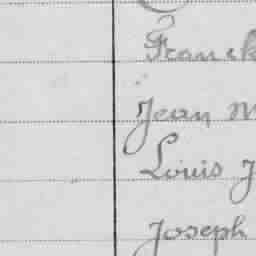 Franck
Jean M
Louis J
Joseph